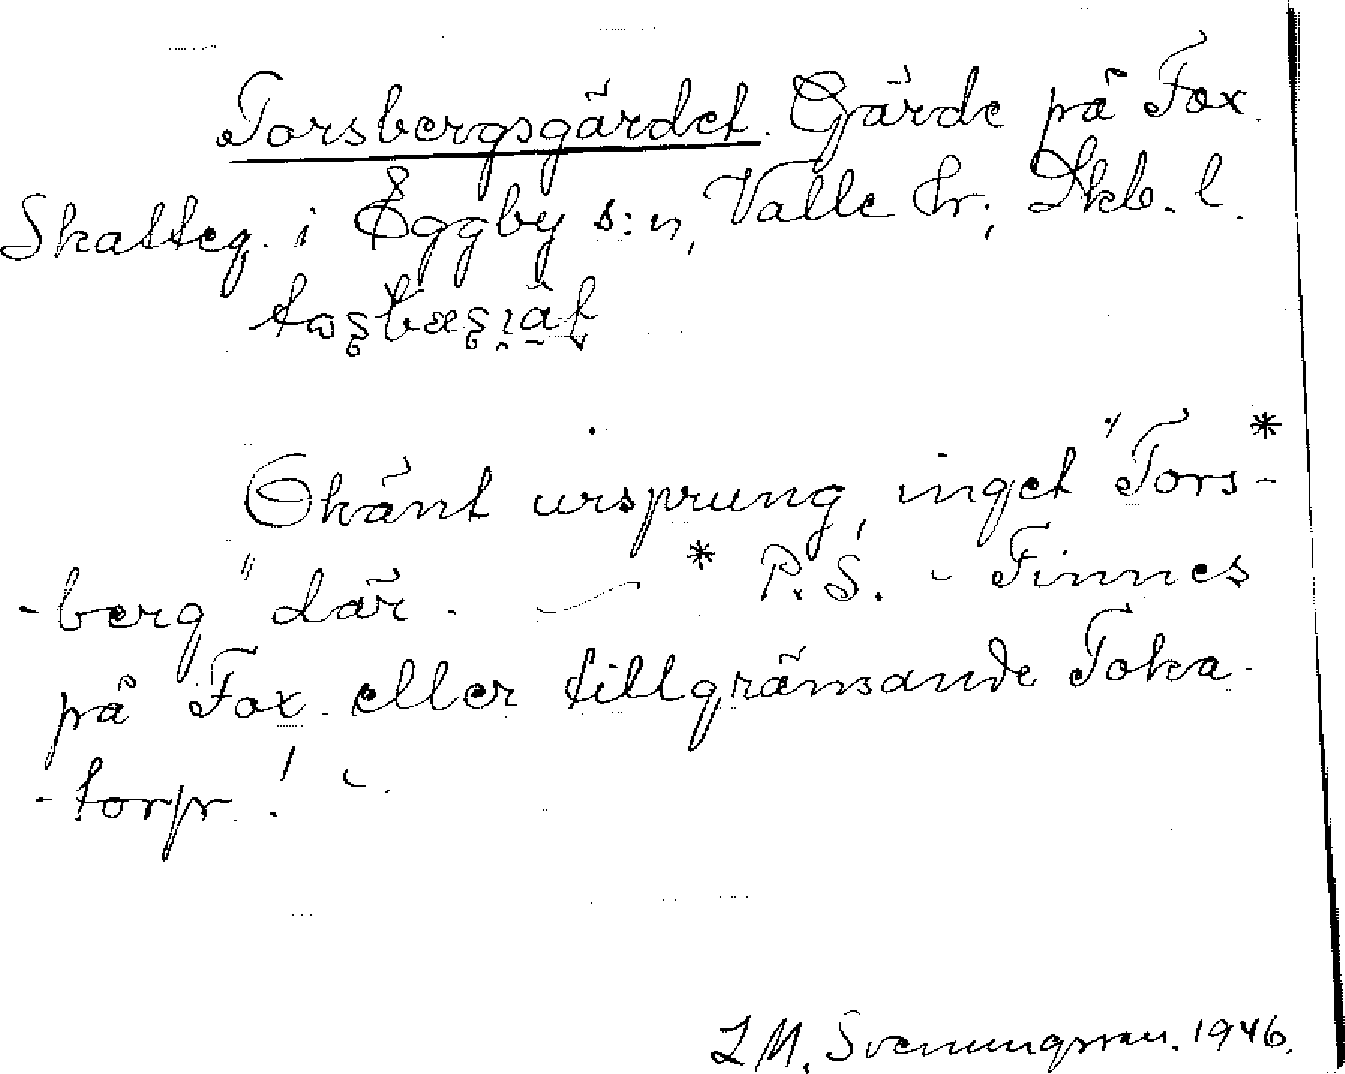 Torsbergsgärdet. Gärde på Fox.
Skatteg. i Eggby s:n, Valle hr, Skb. l.
Okänt ursprung, inget "Tors-*
-berg" där. — * P.S. - Finnes
på Fox. eller tillgränsande Toka-
-torp. ! -
L M. Svenungsson. 1946.